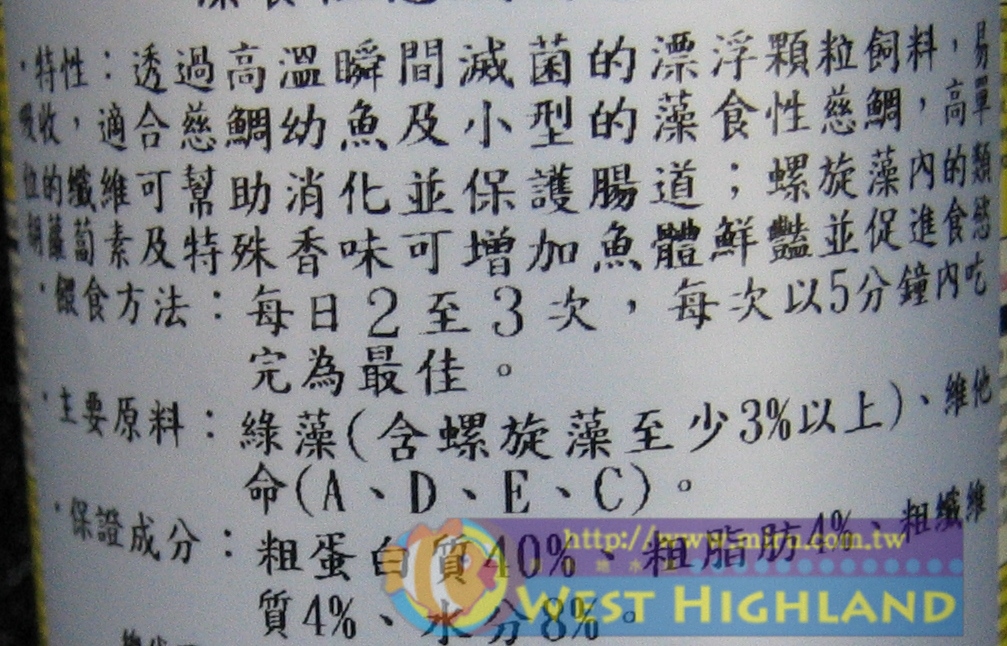 ・特性：透過高溫瞬間滅菌的漂浮顆粒飼料，易
吸收，適合慈鯛幼魚及小型的藻食性慈鯛，高單
位的纖維可幫助消化並保護腸道；螺旋藻內的類
胡蘿蔔素及特殊香味可增加魚體鮮豔並促進食慾
・餵食方法：每日2至3次，每次以5分鐘內吃
完為最佳。
・主要原料：綠藻(含螺旋藻至少3%以上)、維他
命(A、D、E、C)。
・保證成分：粗蛋白質40%、粗脂肪4%、粗纖維
質4%、水分8%。
WEST HIGHLAND